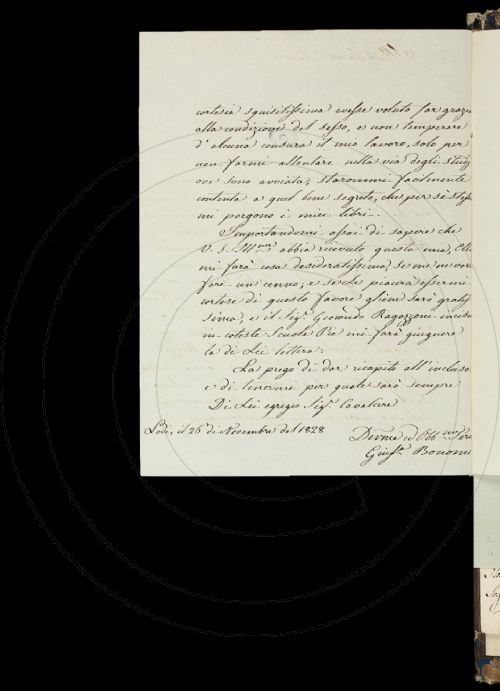 cortesia squisitissima avesse voluto far grazia
alla condizione del sesso, e non temperare
d'alcuna censura il mio lavoro, solo per
non farmi allentare nella via degli studj
ove sono avviata; starommi facilmente
contenta a quel bene segreto, che per sè stessi
mi porgono i miei libri.
Importandomi assai di sapere che
V. S. Ill.ma abbia ricevuto questa mia, Ella
mi farà cosa desideratissima, se me ne vor
fare un cenno; e se Le piacerà essermi
cortese di questo favore gliene sarò gratis
sima, e il Sig.r Giocondo Ragazzoni
in coteste Scuole Pie mi farà giugnere
la di Lei lettera.
La prego di dar ricapito all'inclusa
e di tenermi per quale sarò sempre
Di Lei egregio Sig.r Cavaliere
Lodi, il 26 di Novembre del 1828
Dev.ma ed Obb.ma
Gius.a Bonomi